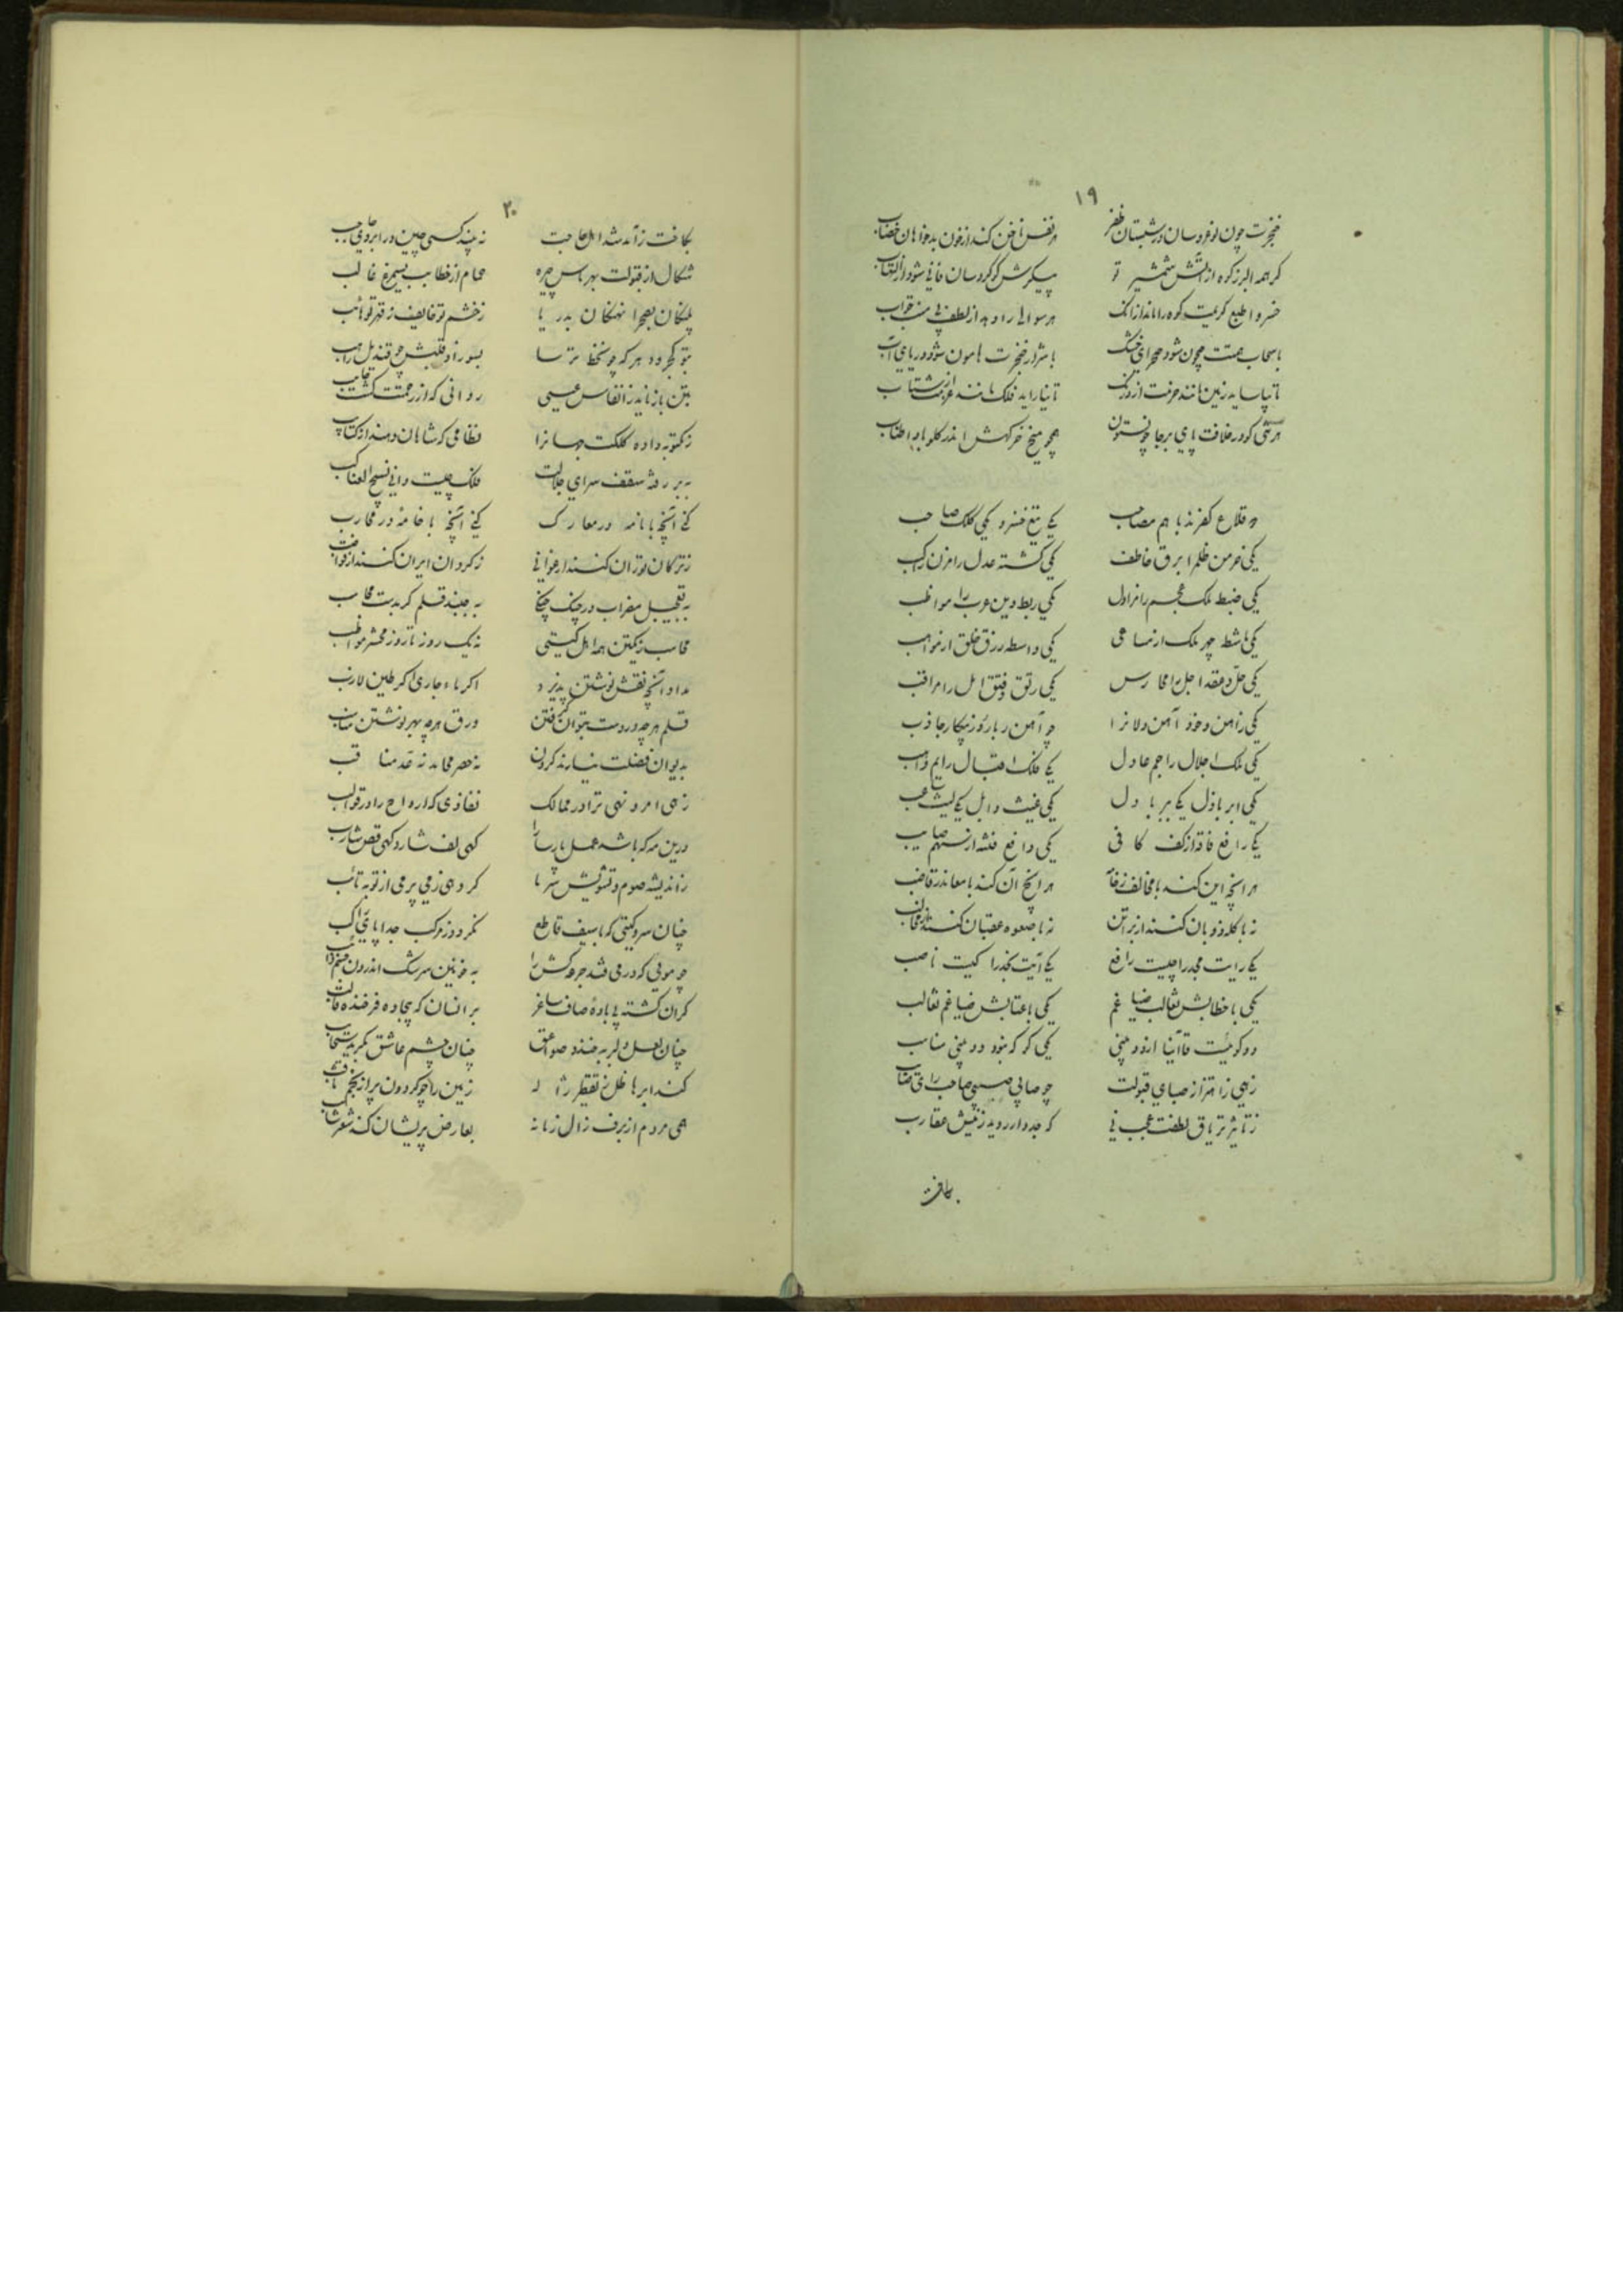 ۱۹
خنجرت چون نوعروسان در شبستان ظفر هر نفس ناخن کند از خون بدخواهان خضاب
گر همه البرز کوه از آتش شمشیر تو پیکرش گوگردسان فانی شود از التهاب
خسروا طبع کریمت کوه را ماند از آنک هر سؤالی را دهد از لطف
با سحاب همتت جیحون شود صحرای خشک با شرار خنجرت هامون شود دریای آب
تا نپاید زمین مانند حزمت از درنگ تا نیاراید فلک مانند عزمت از شتاب
هر تنی کو در خلافت پای برجا چون ستون همچو میخ خرگهش اندر گلو بادا طناب
دو قلاع کفرند با هم مصاحب یکی تیغ خسرو یکی کلک صاحب
یکی خرمن ظلم را برق خاطف یکی کشته عدل را مزن ساکب
یکی ضبط ملک عجم را مزاول یکی ربط دین عرب را مواظب
یکی ماشط چهر ملک از مساعی یکی واسطه رزق خلق از مواهب
یکی حل و عقد اجل را ممارس یکی رتق و فتق امل را مراقب
یکی زآهن و خود آهن‌دلان را چو آهن‌ربا روز پیکار جاذب
یکی ملک اجلال را جم عادل یکی فلک اقبال را یم واهب
یکی ابر باذل یکی ببر بادل یکی غیث وابل یکی لیث غالب
یکی رافع فاقه از کف کافی یکی دافع فتنه از سهم صایب
هر آنچ این کند با مخالف ز خامه هر آنچ آن کند با معاند ز قاضب
نه با گله ذؤبان کنند از براثن نه با صعوه عقبان کنند از مخالب
یکی رایت مجد را چیست رافع یکی آیت نجد را کیست ناصب
یکی با خطابش ثعالب ضیاغم یکی با عتابش ضیاغم ثعالب
دو گوئیست قاآنیا از دو بینی یکی گو که نبود دو بینی مناسب
زهی زاهتزاز صبای قبولت چو صابی صبیی صاحب رای صائب
ز تأثیر تریاق لطفت عجب نی که جدوار روید ز نیش عقارب
بکافت
۲۰
بکافت ز آمد شد اهل حاجت نه بیند کسی چین در ابروی حاجب
شگال از قبولت بهرماس چیره حمام از خطابت بسیمرغ غالب
پلنگان بصحرا نهنگان بدریا ز خشم تو خائف ز قهر تو هائب
بتو کج رود هر که چو خط ترسا بسوزاد قلبش چو قندیل راهب
بتن باز ناید ز انفاس عیسی روانی که از رحمتت گشت خایب
ز مکتوبه داده کلکت جهان را نظامی که شاهان دهند از کتایب
بر رفته سقف سرای جلالت فلک چیست دانی نسیج العناکب
کنی آنچه با نامه در معارک کنی آنچه با خامه در محارب
ز ترکان توران کنند ارغوانی ز گردان ایران کنند از قواضب
به تعجیل مضراب در چنگ چنگی به جنبد قلم گر بدست محاسب
محاسب ز یکتن همه اهل گیتی نه یک روز تا روز محشر مواظب
مداد آنچه نقش نوشتن پذیرد اگر ماء جاری اگر طین لازب
قلم هر چه در دست بتوان گرفتن ورق هر چه بهر نوشتن مناسب
بدیوان فضلت نیارند کردن نه حصر محامد نه عد مناقب
زهی امر و نهی ترا در ممالک نفاذی که ارواح را در قوالب
درین مه که باشد عمل پارسا را گهی لف شارد گهی قص شارب
ز اندیشه صوم و تشویش سرما گروهی ز می برمی از توبه تائب
چنان سرد گیتی که با سیف قاطع نگردد ز مرکب جدا پای راکب
چو مویی که در می فتد جرعه‌کش را به خونین سرشک اندرون جسم ذائب
گران گشته بی بادهٔ صاف ساغر بر انسان که بیجاده فرخنده قالب
چنان لعل دلبر به خندد صواعق چنان چشم عاشق بگرید سحائب
کند ابر هاطل ز تقطیر ژاله زمین را چو گردون پر از نجم ثاقب
همی مردم از برف زال زمانه بعارض پریشان کند شعر شائب